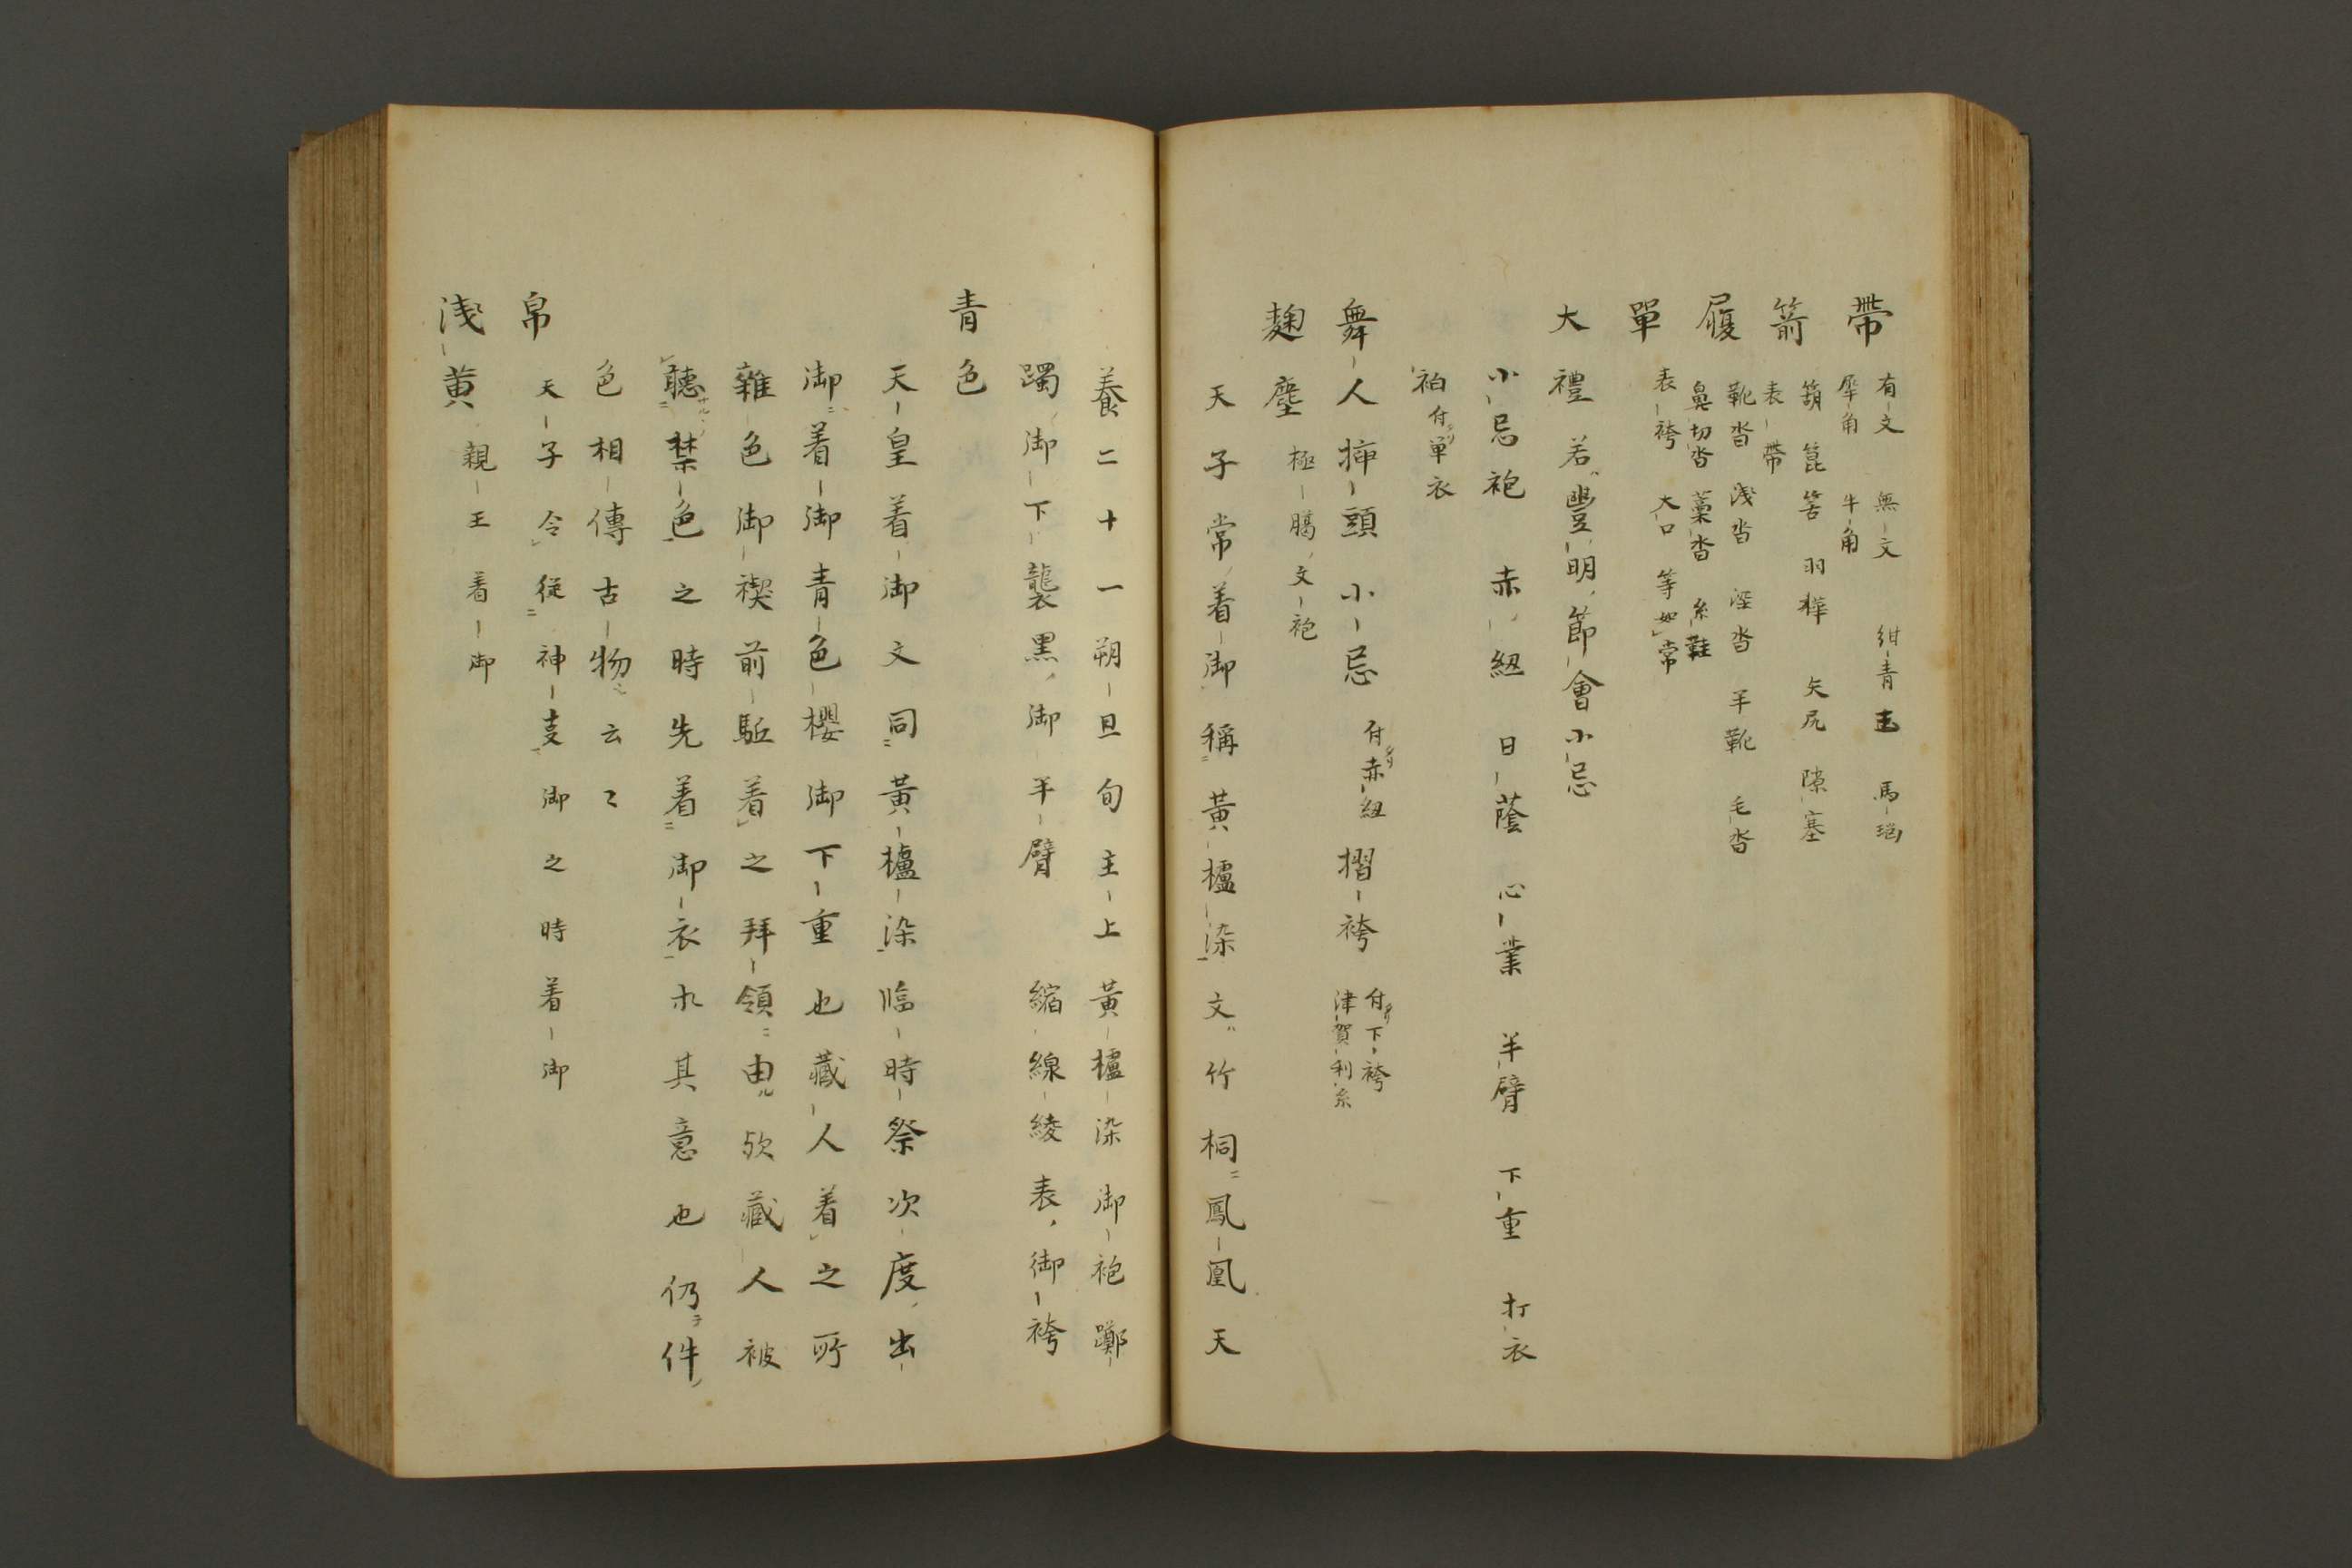 帶 有文 無文 紺青玉 馬瑙
犀角 牛角
箭 箶簏筈羽樺 矢尻 隙塞
表帶
履 靴沓 浅沓 深沓 半靴 毛沓
鼻切沓 藁沓 糸鞋
單 表袴 大口 等如常
大禮 若豐明節會小忌
小忌袍 赤紐 日蔭 心葉 半臂 下重 打衣
袙 付單衣
舞人挿頭 小忌 付赤紐 摺袴 付下袴
津賀利糸
麹塵 極﨟文袍
天子常着御稱黃櫨染文竹桐鳳凰天
養二十一朔旦旬主上黃櫨染御袍躑
躅御下襲黒御半臂 縮線綾表御袴
青色
天皇着御文同黃櫨染臨時祭次度出
御着御青色櫻御下重也藏人着之所
雜色御禊前駈着之拜領由欤藏人被
聽禁色之時先着御衣木其意也仍件
色相傳古物云々
帛 天子令從神支御之時着御
浅黄 親王着御